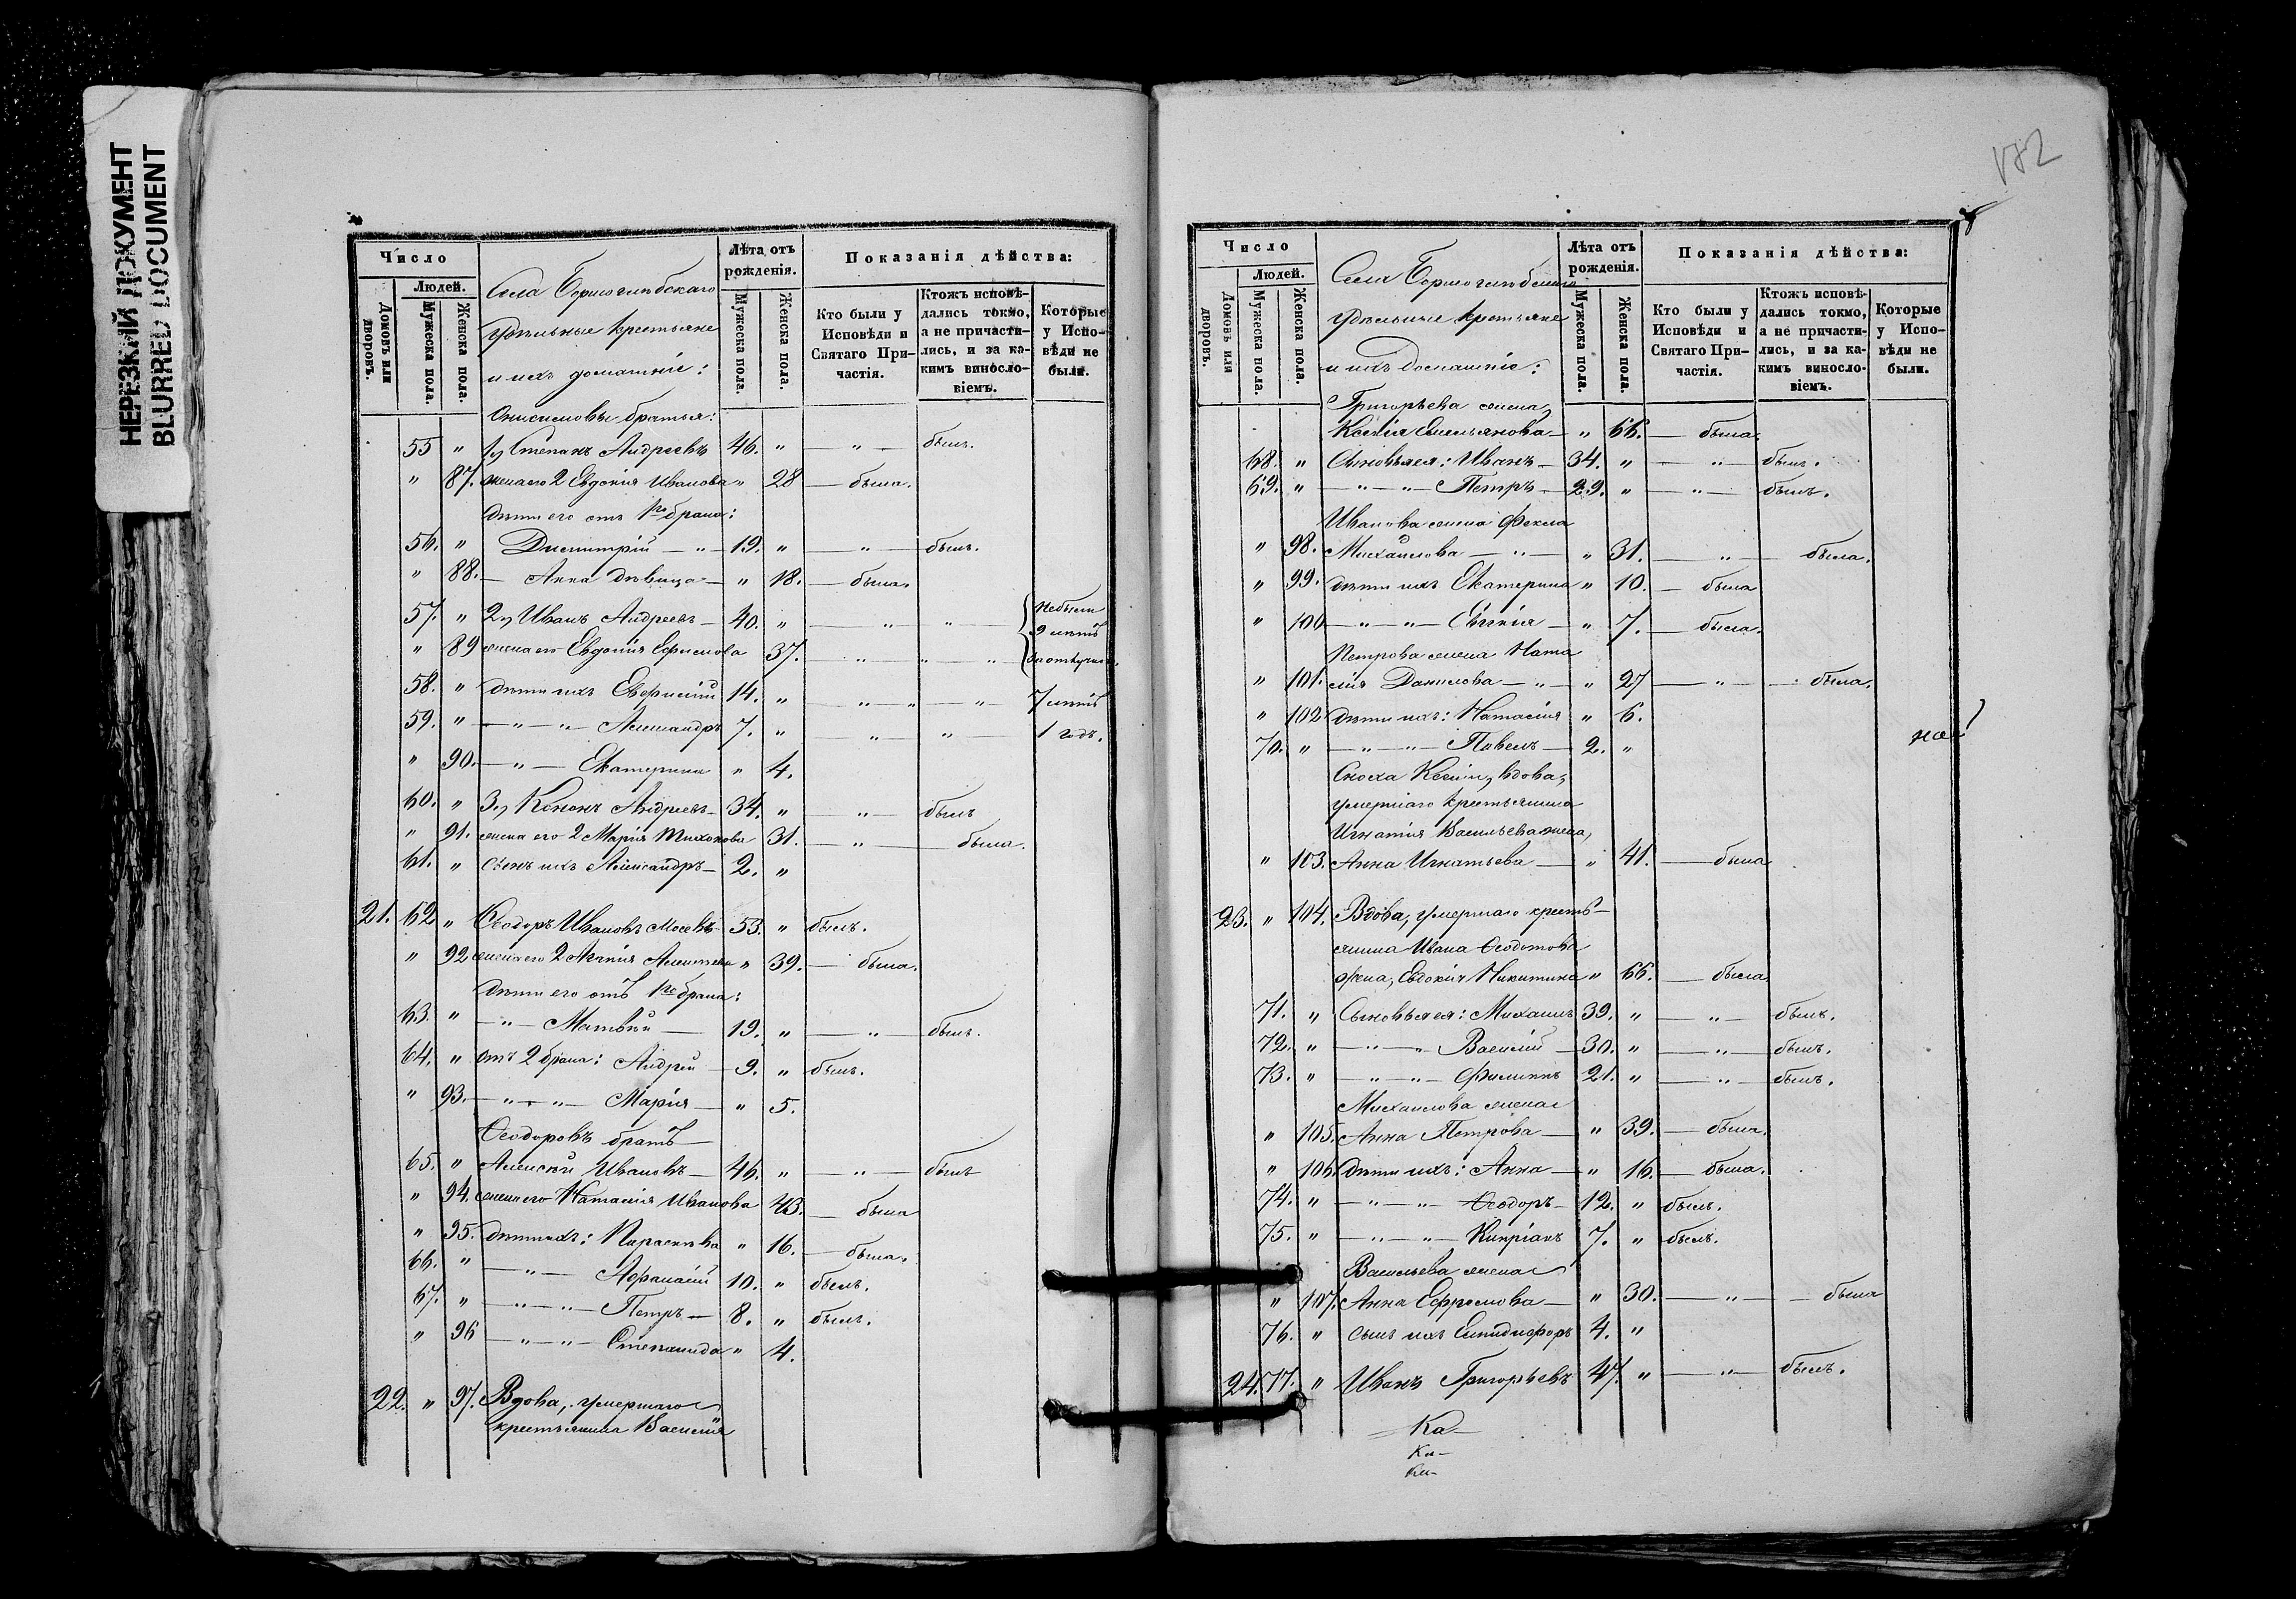 НЕРЕЗКИЙ ДОКУМЕНТ
BLURRED DOCUMENT
Число
Людей.
Домовъ или дворовъ.
Мужеска пола.
Женска пола.
Села
Удѣльные крестьяне
и ихъ домашніе:
Лѣта отъ рожденія.
Мужеска пола.
Женска пола.
Показанія дѣйства:
Кто были у Исповѣди и Святаго Причастія.
Ктожъ исповѣдались токмо, а не причастились, и за какимъ винословіемъ.
Которые у Исповѣди не были.
братья:
55 " 1) Стефанъ Андреевъ 46. " — " — былъ.
" 87. жена его 2 Евдокія Иванова " 28 — была.
дѣти его отъ 1го брака:
56. " Димитрій — " — 19. " — " — былъ.
" 88. — Анна дѣвица — " 18. — была.
57. " 2) Иванъ Андреевъ — 40. " — " " небыли
" 89 жена его Евдокія Ефимова 37. — " — " — " 9 лѣтъ
58. " дѣти ихъ 14. " — " — " — " 7 лѣтъ
59. " — " — " — Александръ 7. " — " — " — 1 годъ.
" 90. — " — Екатерина " 4.
60. " 3) Кононъ Андреевъ — 34. " — " — былъ
" 91. жена его 2 Марія Тихонова 31. — " — была.
61. " сынъ ихъ Александръ — 2. "
21. 62 " Ѳеодоръ Ивановъ 53. " былъ.
" 92 жена его 2 " 39. — была.
дѣти его отъ 1го брака:
63. " — " — Матвѣй — 19. " — " — былъ.
64. " отъ 2 брака: Андрей — 9. " былъ.
" 93. — " — " — Марія — " 5.
Ѳеодоровъ братъ —
65. " Алексѣй Ивановъ — 46. " — " — былъ
" 94. жена его Наталія Иванова 43. — была
" 95. дѣти ихъ: Параскева " 16. — была.
66. " — " — Афанасій 10. " былъ.
67. " — " — " — Петръ — 8. " былъ.
" 96 — " — " — Степанида " 4.
22. " 97. Вдова, умершаго
крестьянина Василія
172
Число
Людей.
Домовъ или дворовъ.
Мужеска пола.
Женска пола.
Села
Удѣльные крестьяне
и ихъ домашніе:
Лѣта отъ рожденія.
Мужеска пола.
Женска пола.
Показанія дѣйства:
Кто были у Исповѣди и Святаго Причастія.
Ктожъ исповѣдались токмо, а не причастились, и за какимъ винословіемъ.
Которые у Исповѣди не были.
Григорьева жена,
Ксенія Емельянова — " 66. — была,
68. " Сыновья ея: Иванъ — 34. " — " — былъ.
69. " — " — " — Петръ — 29. " — " — былъ.
Иванова жена Фекла
" 98. Михайлова — " — " 31. — " — была.
" 99. дѣти ихъ Екатерина " 10. — была
" 100 — " — " — — " 7. — была.
Петрова жена Ната
" 101. лія Данилова — " — " 27 — " — была.
" 102 дѣти ихъ: Наталія " 6.
70. " — " — " — Павелъ — 2. "
Сноха Ксеніи, вдова,
умершаго крестьянина
Игнатія Васильева жена,
" 103. Анна Игнатьева — " 41. — была
23. " 104. Вдова, умершаго кресть—
янина Ивана Ѳеодотова
жена, Евдокія Никитина " 66. — была
71. " Сыновья ея: Михаилъ 39. " — " — былъ.
72. " — " — " — Василій — 30. " — " — былъ.
73. " — " — " — Филиппъ 21. " — " — былъ.
Михаилова жена
" 105. Анна Петрова — " 39. — была.
" 106. Дѣти ихъ: Анна — " 16. — была.
74. " — " — " — Ѳеодоръ — 12. " былъ.
75. " — " — " — Кипріанъ 7. " былъ.
Васильева жена
" 107. Анна Ефремова — " 30. — " — была
76. " сынъ ихъ 4. "
24. 77. " Иванъ Григорьевъ 47. " — " — былъ.
— Ка —